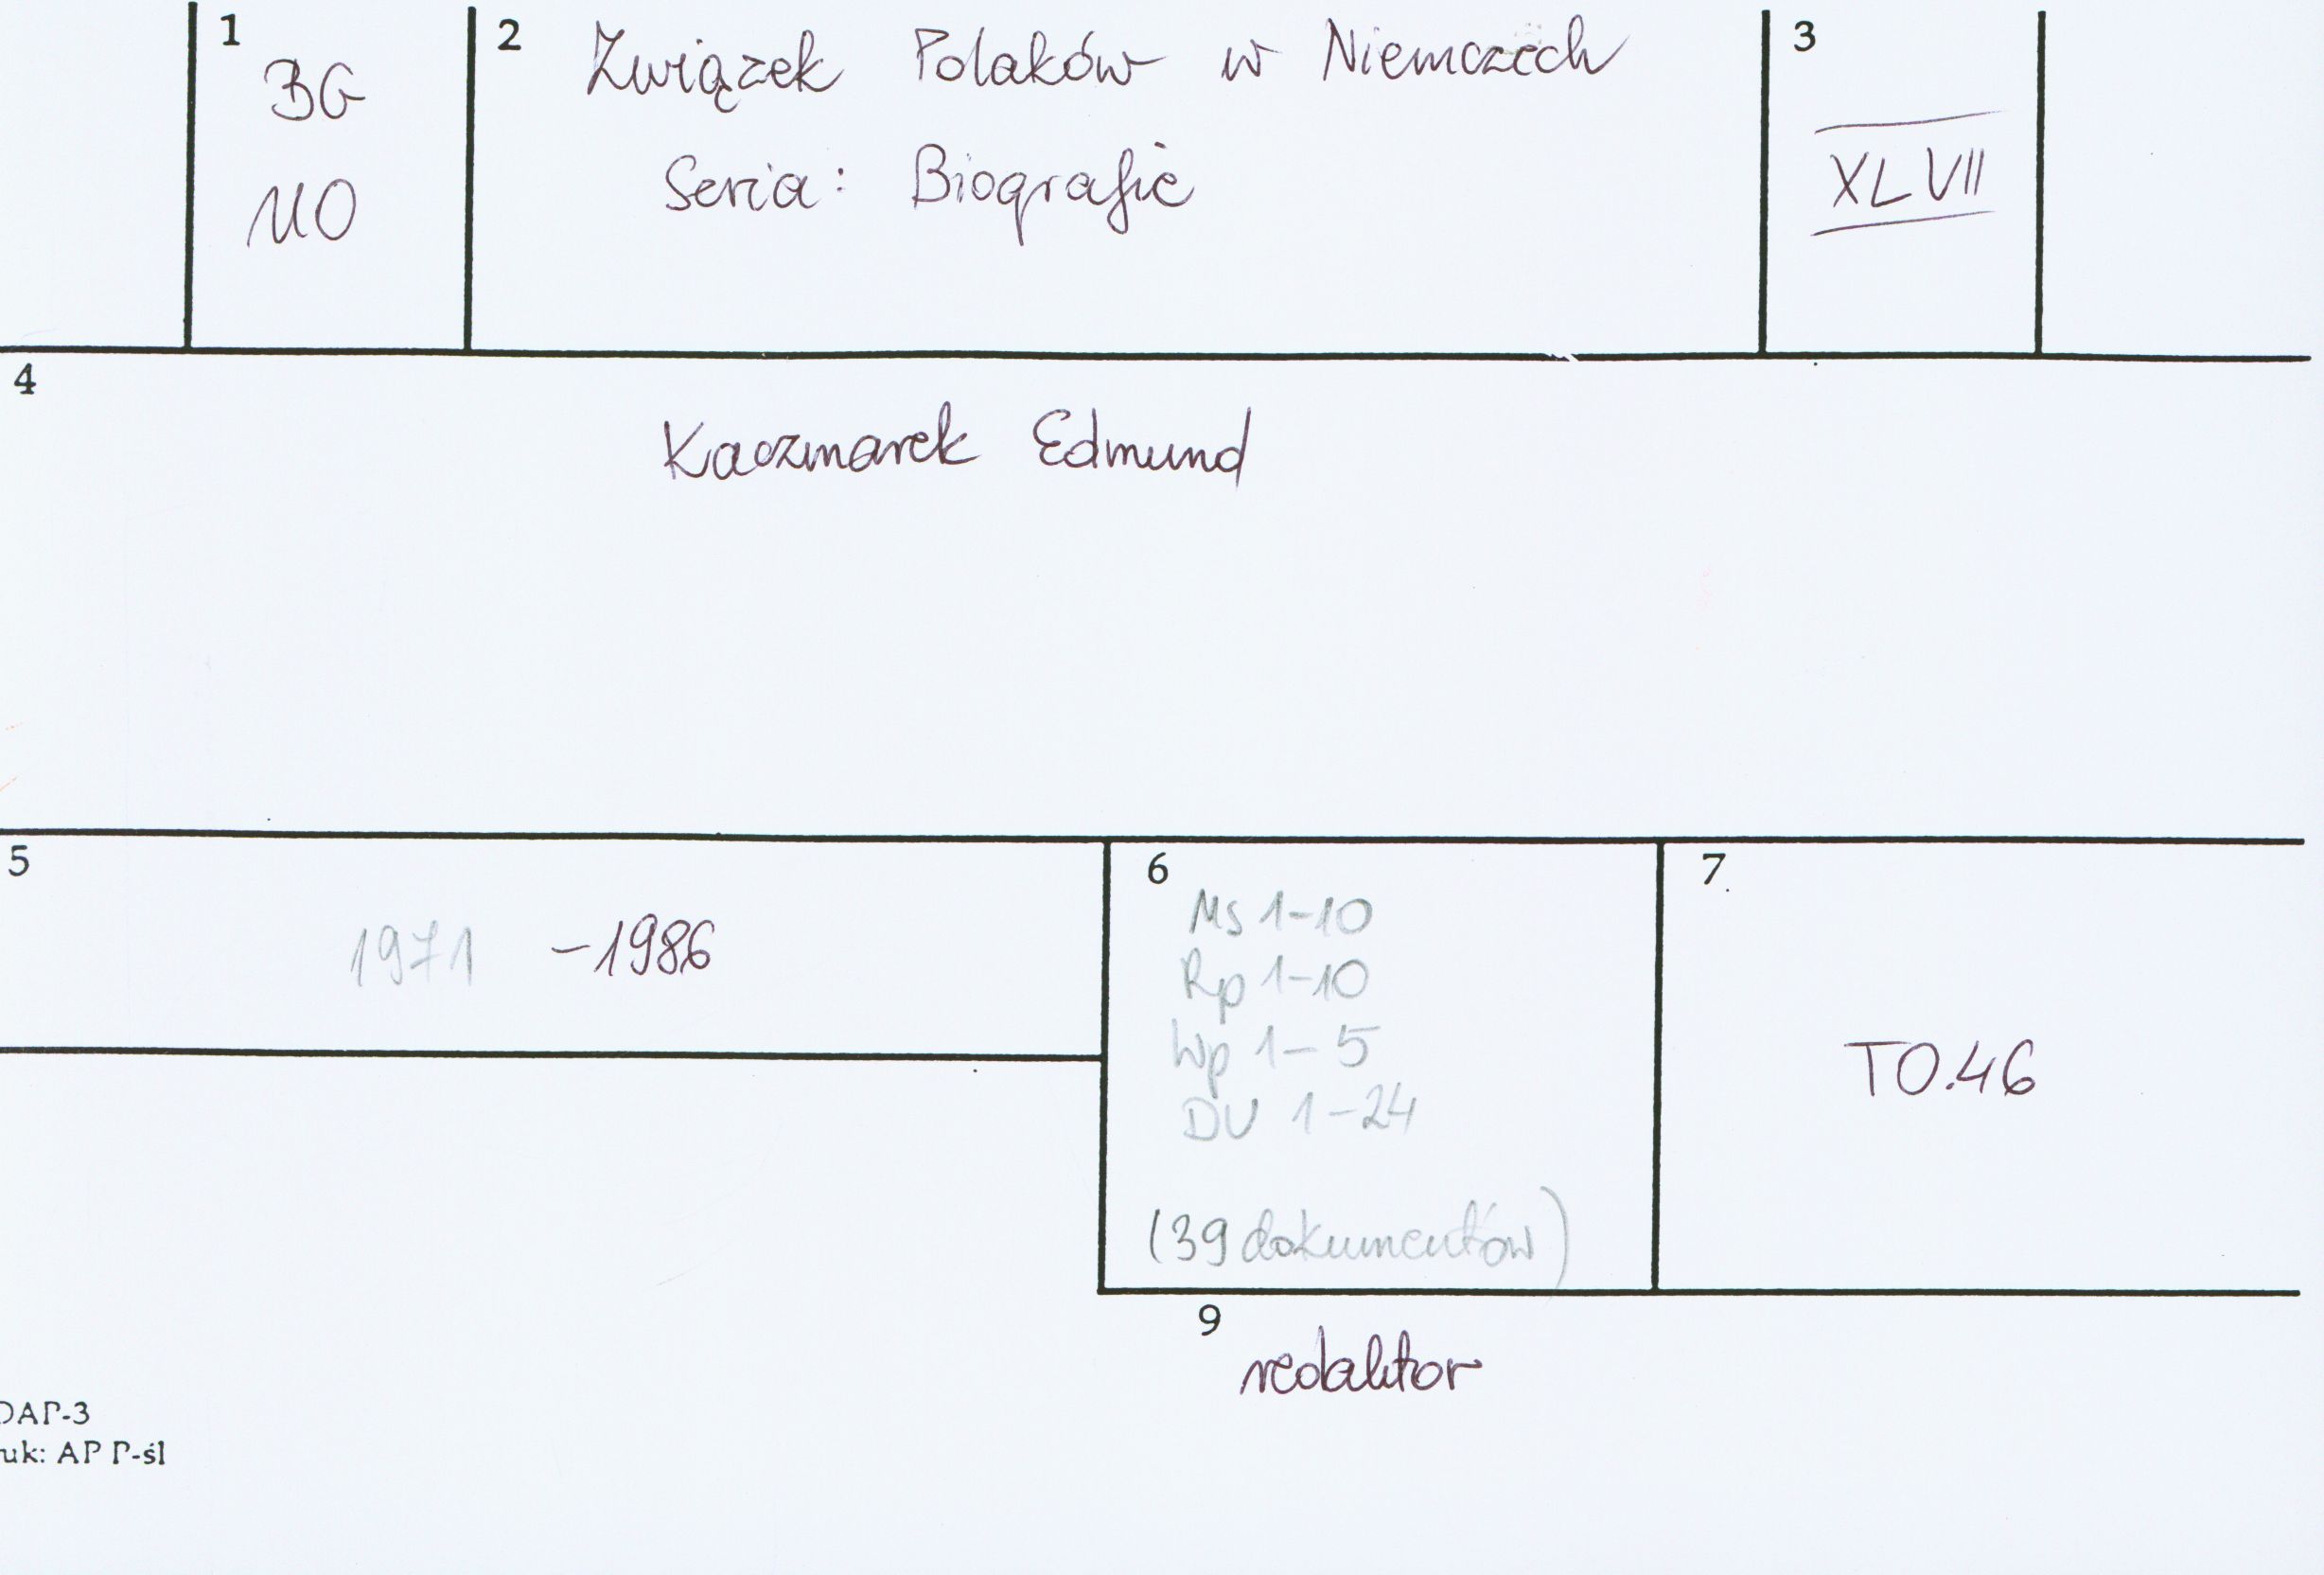 1
BG
UO
2
Związek Polaków w Niemczech
Seria: Biografie
3
XLVII
4
Kaczmarek Edmund
5
1971 -1986
6
Ms 1-10
Rp 1-10
Wp 1-5
DU 1-24
(39 dokumentów)
7
TO.46
9
redaktor
DAP-3
uk: AP P-śl